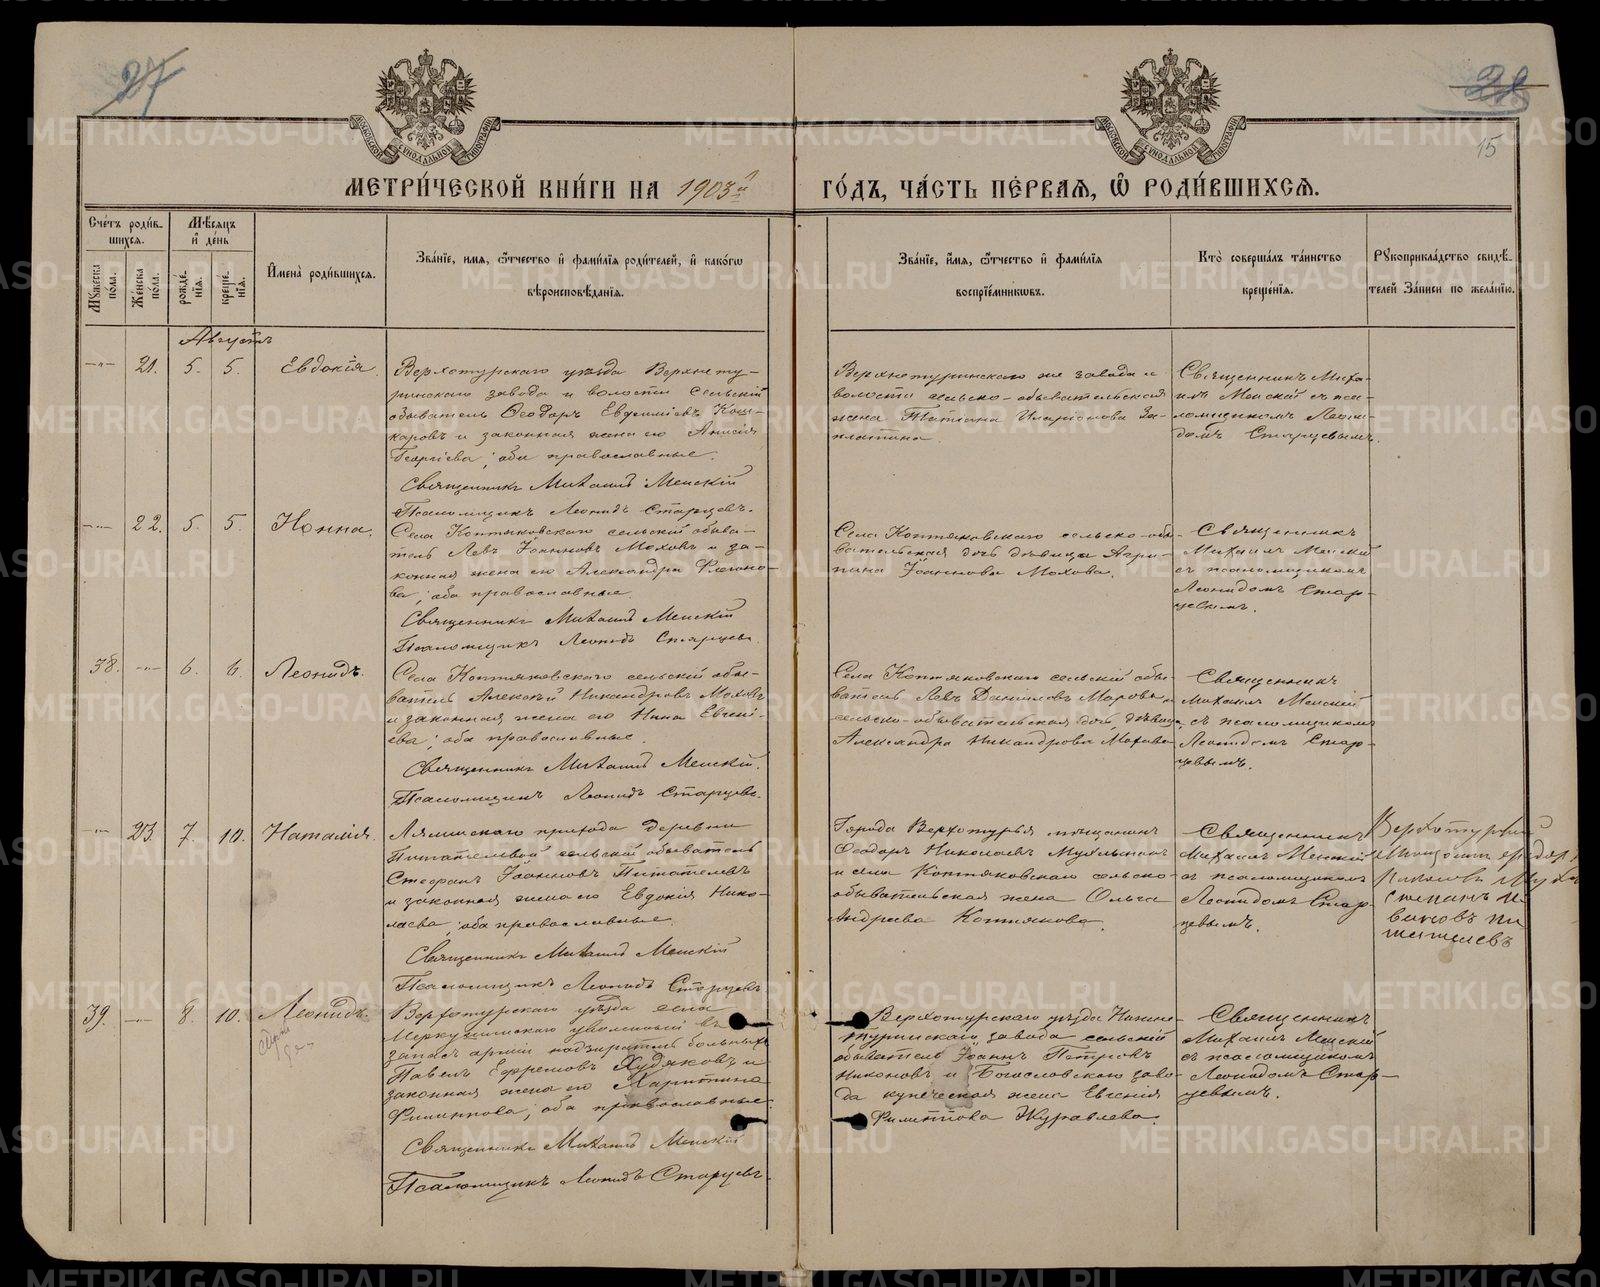 27
28
15
МЕТРИ́ЧЕСКОЙ КНИ́ГИ НА 1903й
ГО́ДЪ, ЧА́СТЬ ПЕ́РВАѦ, Ѡ РОДИ́ВШИХСѦ.
Сче́тъ роди́в-
шихсѧ.
Мꙋ́жеска
по́ла.
Же́нска
по́ла.
Мѣ́сѧцъ
и҆ де́нь
рожде́-
нїѧ.
креще́-
нїѧ.
И҆мена̀ роди́вшихсѧ.
Зва́нїе, и҆мѧ, ѻ҆́тчество и҆ фами́лїѧ роди́телей, и҆ како́гѡ
вѣроисповѣ́данїѧ.
Зва́нїе, и҆́мѧ, ѻ҆́тчество и҆ фами́лїѧ
воспрїе́мникѡвъ.
Кто̀ соверша́лъ та́инство
креще́нїѧ.
Рꙋкоприкла́дство свидѣ́-
телей за́писи по жела́нїю.
Августъ
21. 5. 5. Евдокія.
Верхотурскаго уѣзда Верхнету-
ринскаго завода и волости сельскій
обыватель Ѳеодоръ Евфиміевъ Кош-
каровъ и законная жена его Анисія
Георгіева; оба православные.
Священникъ Михаилъ Менскій
Псаломщикъ Леонидъ Старцевъ.
Верхнетуринскаго же завода и
волости сельско-обывательская
жена Татіана Иларіонова За-
платина.
Священникъ Миха-
илъ Менскій съ пса-
ломщикомъ Леони-
домъ Старцевымъ.
22. 5. 5. Нонна.
Села Коптяковскаго сельскій обыва-
тель Левъ Іоанновъ Моховъ и за-
конная жена его Александра
ва; оба православные.
Священникъ Михаилъ Менскій
Псаломщикъ Леонидъ Старцевъ
Села Коптяковскаго сельско-обы-
вательская дочь дѣвица Агри-
пина Іоаннова Мохова.
Священникъ
Михаилъ Менскій
съ псаломщикомъ
Леонидомъ Стар-
цевымъ.
38. 6. 6. Леонидъ.
Села Коптяковскаго сельскій обы-
ватель Алексѣй Никандровъ Моховъ
и законная жена его Нина Евгені-
ева; оба православные.
Священникъ Михаилъ Менскій.
Псаломщикъ Леонидъ Старцевъ.
Села Коптяковскаго сельскій обы-
ватель Левъ Даниловъ и
сельско-обывательская дочь, дѣвица
Александра Никандрова Мохова
Священникъ
Михаилъ Менскій
съ псаломщикомъ
Леонидомъ Стар-
цевымъ.
23. 7. 10. Наталія.
Лялинскаго прихода деревни
Питателевой сельскій обыватель
Стефанъ Іоанновъ Питателевъ
и законная жена его Евдокія Нико-
лаева; оба православные.
Священникъ Михаилъ Менскій
Псаломщикъ Леонидъ Старцевъ
Города Верхотурья мѣщанинъ
Ѳеодоръ Николаевъ
и села Коптяковскаго сельско-
обывательская жена Ольга
Андреева Коптякова.
Священникъ
Михаилъ Менскій
съ псаломщикомъ
Леонидомъ Стар-
цевымъ.
Верхотурскій
степанъ И-
вановъ пи
тателевъ
39. 8. 10. Леонидъ.
Верхотурскаго уѣзда села
Меркушинскаго уволенный въ
запасъ арміи надзиратель больныхъ
Павелъ Ефремовъ Худяковъ и
законная жена его Харитина
Филиппова; оба православные.
Священникъ Михаилъ Менскій
Псаломщикъ Леонидъ Старцевъ
Верхотурскаго уѣзда Нижне-
туринскаго завода сельскій
обыватель Іоаннъ Петровъ
Никоновъ и Богословскаго заво-
да купеческая жена Евгенія
Филиппова Журавлева.
Священникъ
Михаилъ Менскій
съ псаломщикомъ
Леонидомъ Стар-
цевымъ.
METRIKI.GASO-URAL.RU